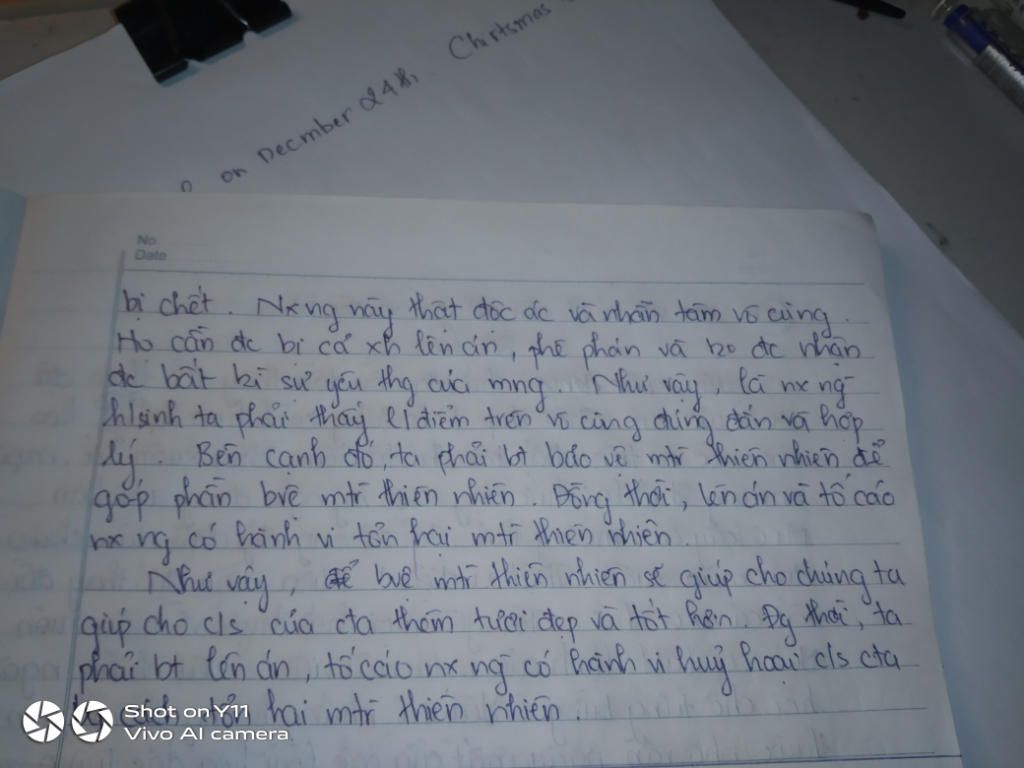 Chirtsmas
on Decmber 24th,
No.
Date
bị chết. Nx ng này thật độc ác và nhẫn tâm vô cùng.
Họ cần đc bị cả xh lên án, phê phán và ko đc nhận
đc bất kì sự yêu thg của mng. Như vậy, là nx ng
h/sinh ta phải thấy l/điểm trên vô cùng đúng đắn và hợp
lý. Bên cạnh đó, ta phải bt bảo vệ mtr thiên nhiên để
góp phần bvệ mtr thiên nhiên. Đồng thời, lên án và tố cáo
nx ng có hành vi tổn hại mtr thiên nhiên.
Như vậy, để bvệ mtr thiên nhiên sẽ giúp cho chúng ta
giúp cho c/s của cta thêm tươi đẹp và tốt hơn. Đg thời, ta
phải bt lên án, tố cáo nx ng có hành vi huỷ hoại c/s cta
bg cách tổn hại mtr thiên nhiên.
Shot on Y11
Vivo AI camera